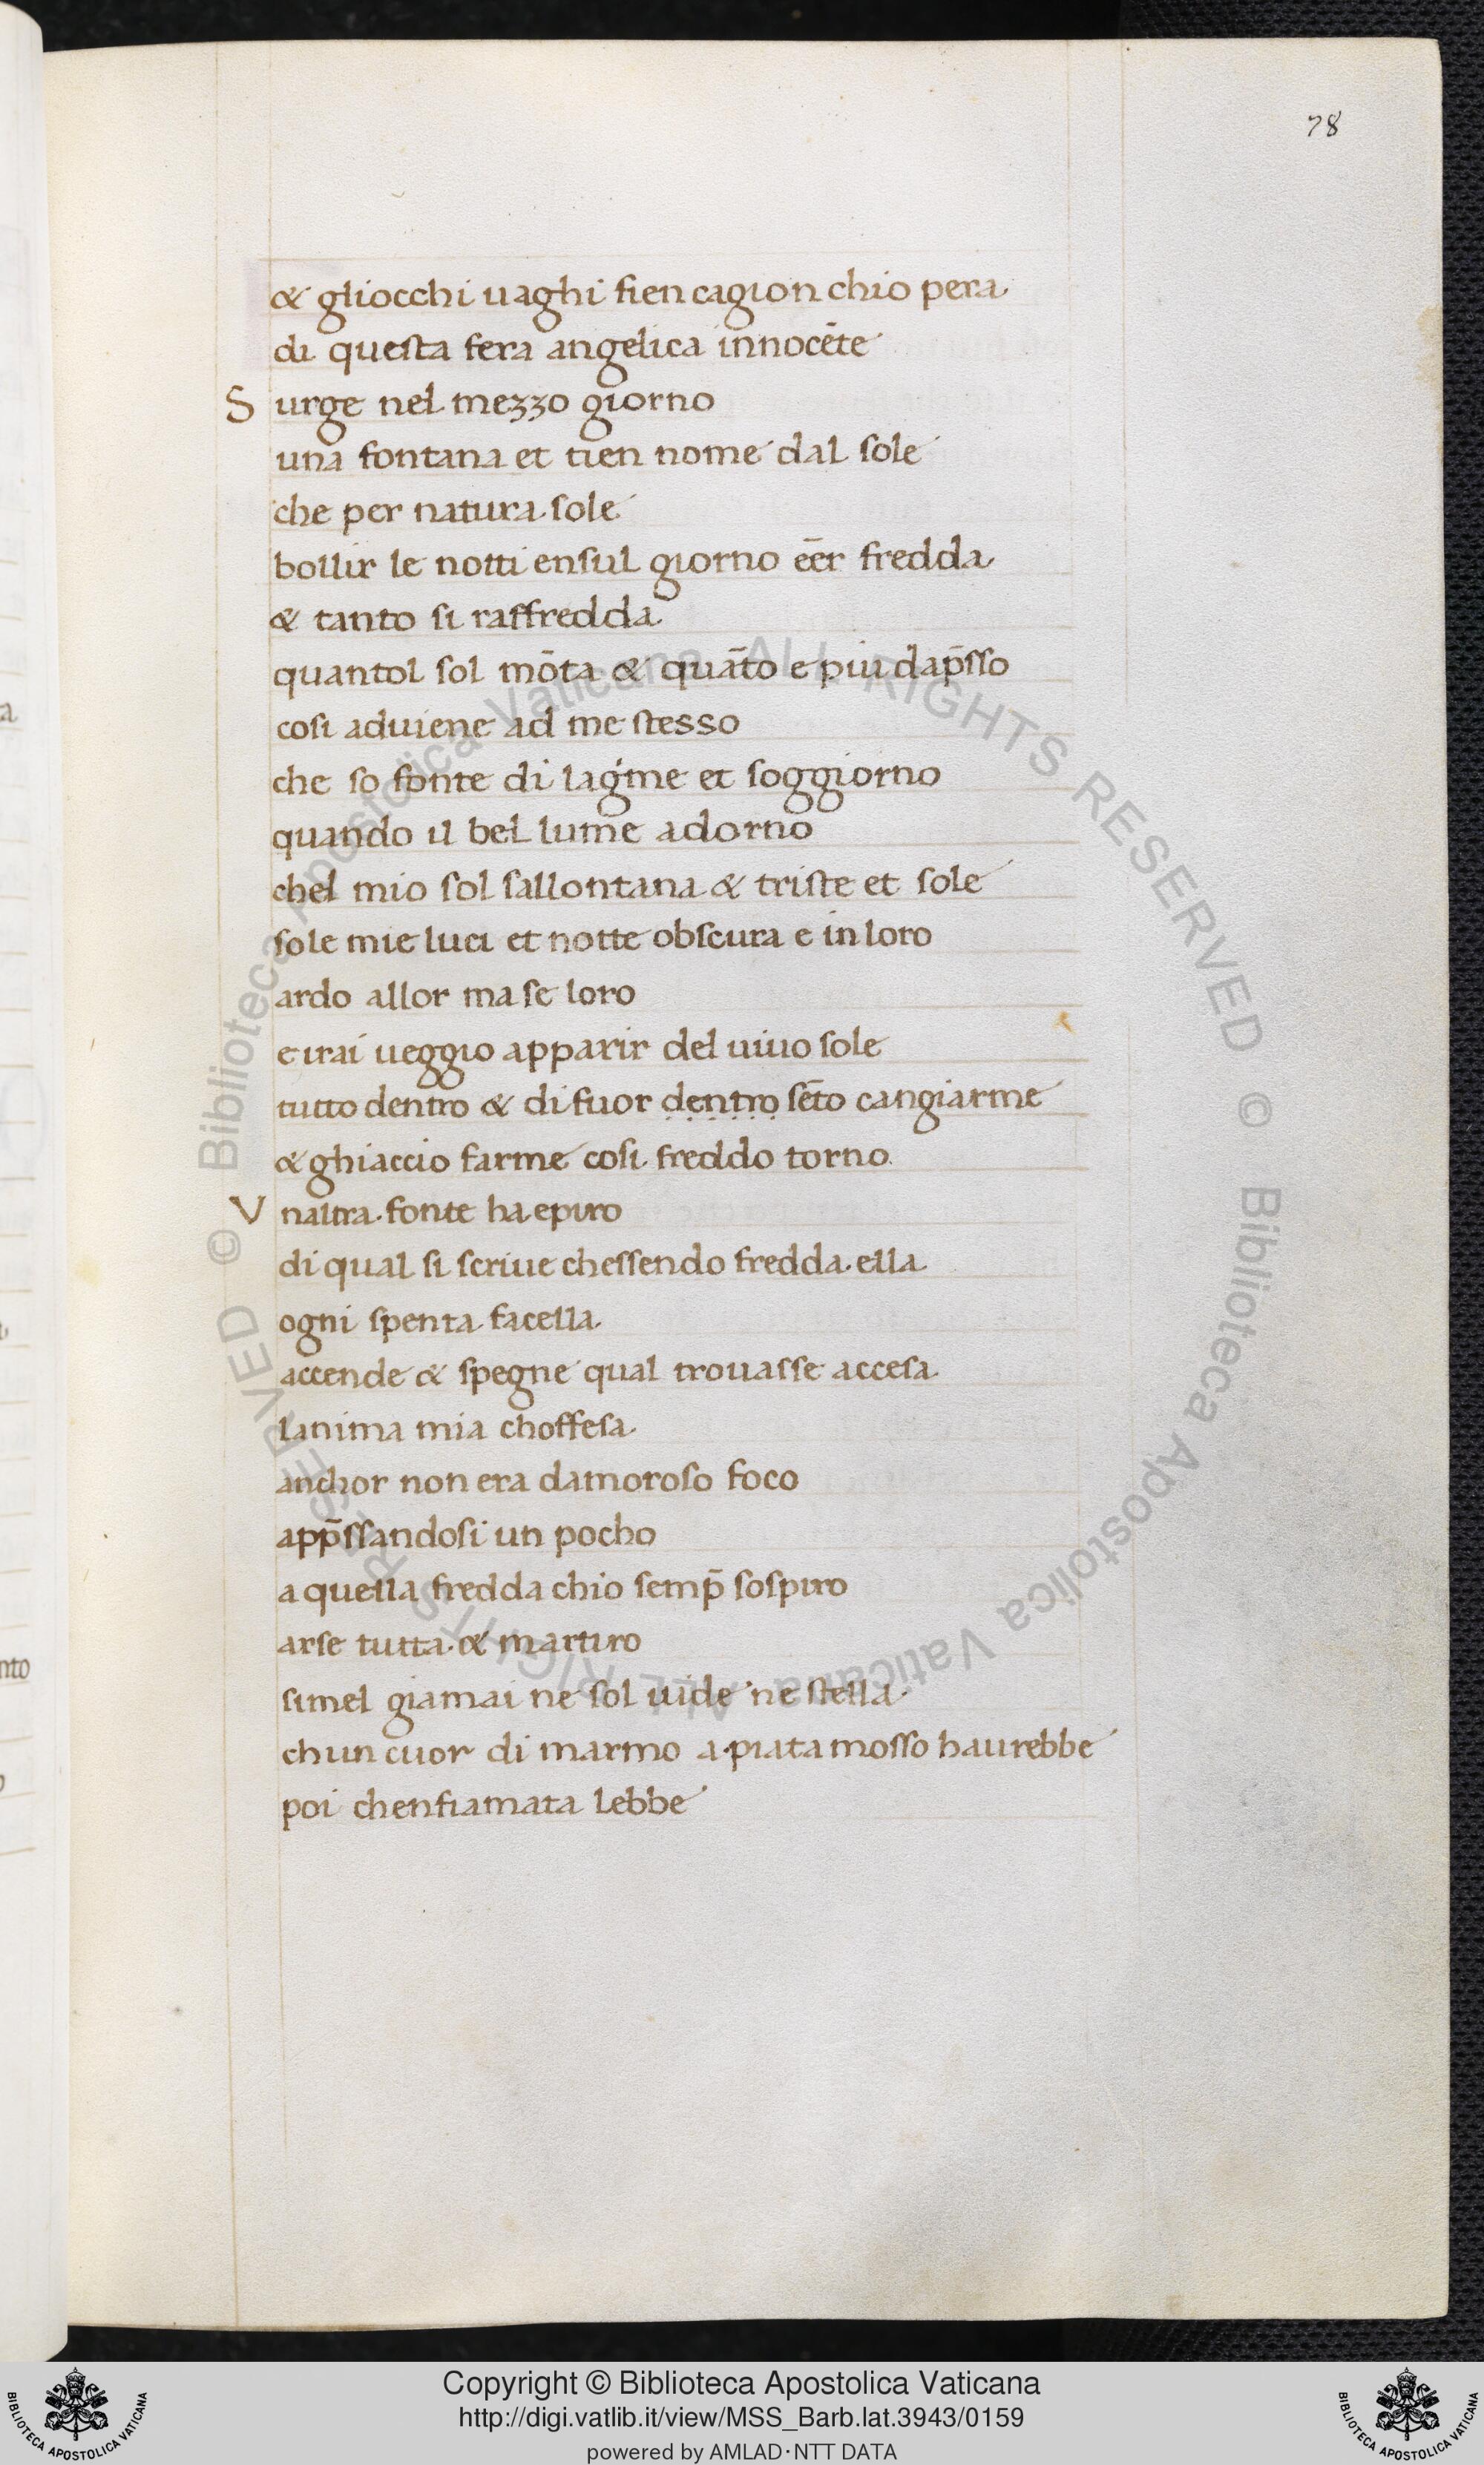 78
& gliocchi uaghi fien cagion chio pera
di questa fera angelica innocēte
S urge nel mezzo giorno
una fontana et tien nome dal sole
che per natura sole
bollir le notti ensul giorno eēr fredda
& tanto si raffredda
quantol sol mōta & quāto e piu dap̄sso
cosi aduiene ad me stesso
che so fonte di lagíme et soggiorno
quando il bel lume adorno
chel mio sol sallontana & triste et sole
sole mie luci et notte obscura e in loro
ardo allor ma se loro
e irai ueggio apparir del uiuo sole
tutto dentro & di fuor dentro sēto cangiarme
& ghiaccio farme cosi freddo torno
V naltra fonte ha epiro
di qual si scriue chessendo fredda ella
ogni spenta facella
accende & spegne qual trouasse accesa
Lanima mia choffesa
anchor non era damoroso foco
app̄ssandosi un pocho
a quella fredda chio semp̄ sospiro
arse tutta & martiro
simel giamai ne sol uide ne stella
chun cuor di marmo a piata mosso haurebbe
poi chenfiamata lebbe
© Biblioteca Apostolica Vaticana ALL RIGHTS RESERVED © Biblioteca Apostolica Vaticana ALL RIGHTS RESERVED
Copyright © Biblioteca Apostolica Vaticana
http://digi.vatlib.it/view/MSS_Barb.lat.3943/0159
powered by AMLAD·NTT DATA
BIBLIOTECA APOSTOLICA VATICANA
BIBLIOTECA APOSTOLICA VATICANA